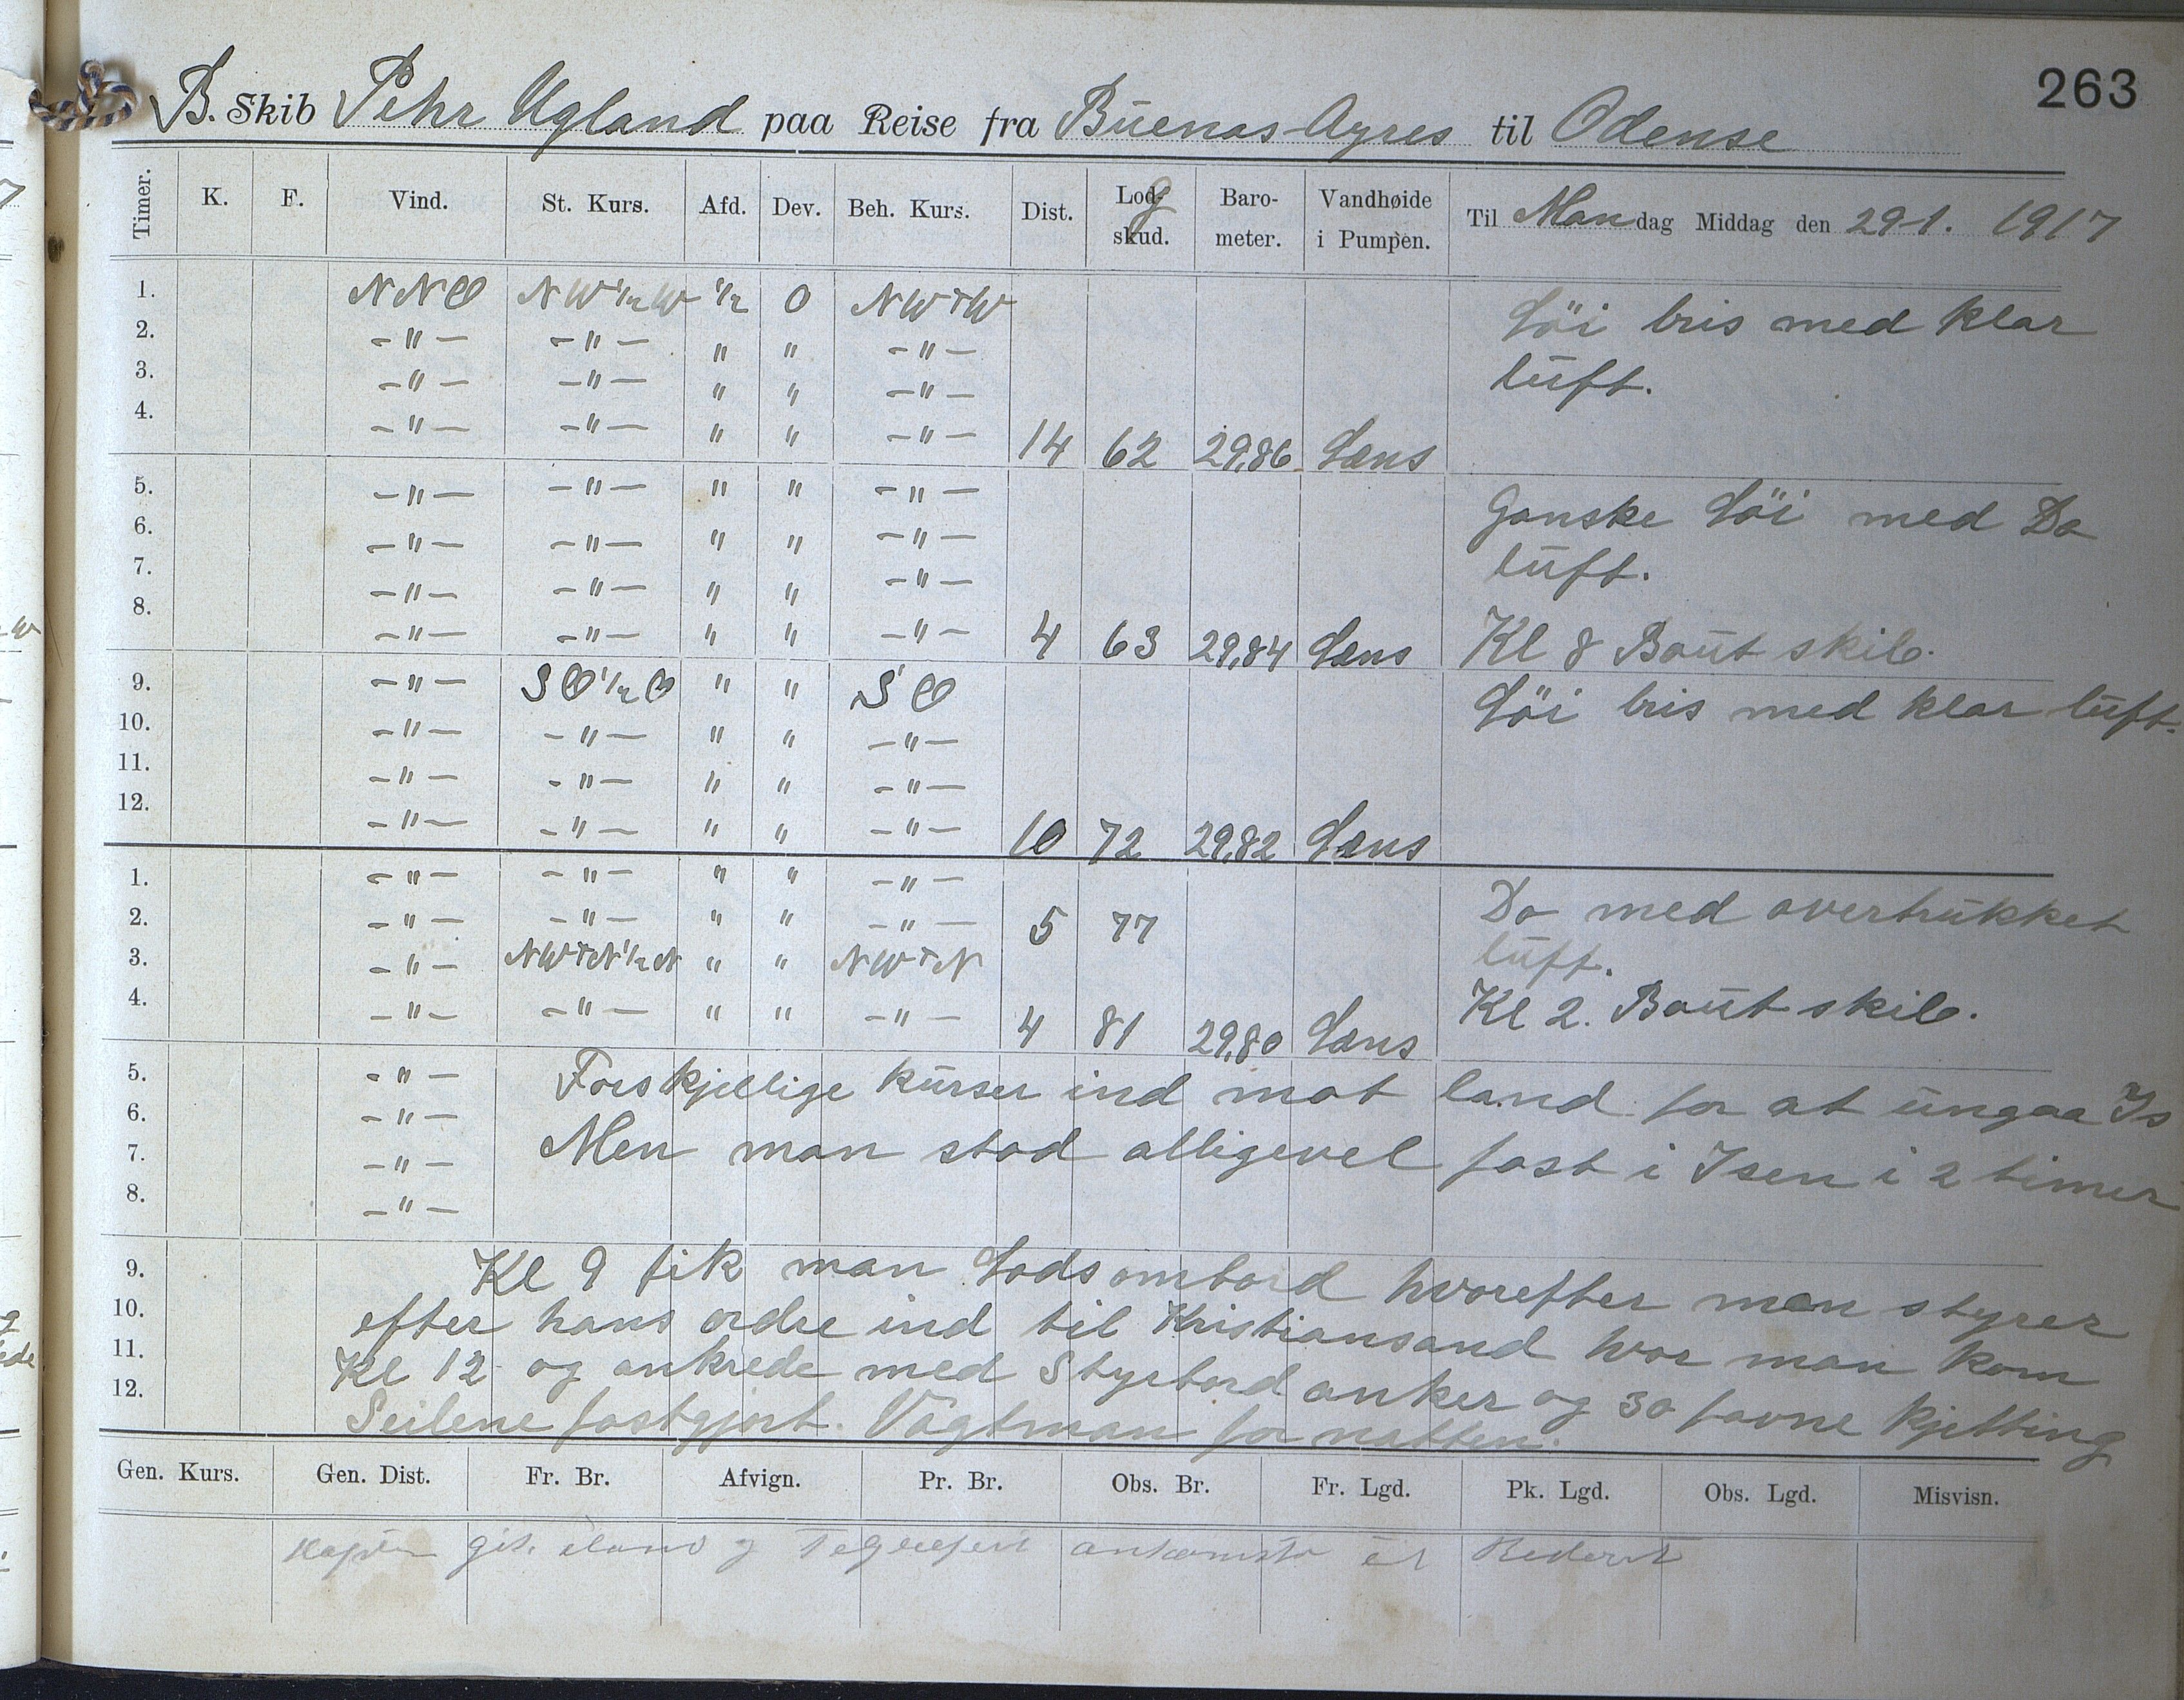 263
B. Skib Pehr Ugland paa Reise fra Buenos-Ayres til Odense
Timer. K. F. Vind. St. Kurs. Afd. Dev. Beh. Kurs. Dist. Logskud. Barometer. Vandhøide i Pumpen. Til Mandag Middag den 29-1. 1917
1. NNO NW½W ½ 0 NWtW Löi bris med klar
2. -"- -"- " " -"- luft.
3. -"- -"- " " -"-
4. -"- -"- " " -"- 14 62 29,86 Læns
5. -"- -"- " " -"- Ganske Löi med Do
6. -"- -"- " " -"- luft.
7. -"- -"- " " -"-
8. -"- -"- " " -"- 4 63 29,84 Læns Kl 8 Baut skib.
9. -"- SO½O " " SO Löi bris med klar luft.
10. -"- -"- " " -"-
11. -"- -"- " " -"-
12. -"- -"- " " -"- 10 72 29,82 Læns
1. -"- -"- " " -"- Do med overtrukket
2. -"- -"- " " -"- 5 77 luft.
3. -"- NWtN½N " " NWtN Kl 2. Baut skib.
4. -"- -"- " " -"- 4 81 29,80 Læns
5. -"- Forskjellige kurser ind mot land for at ungaa Is
6. -"- Men man stod alligevel fast i Isen i 2 timer
7. -"-
8. -"-
9. Kl 9 fik man Lods ombord hvorefter man styrer
10. efter hans ordre ind til Kristiansand hvor man kom
11. Kl 12 og ankrede med Styrbord anker og 30 favne kjetting
12. Seilene fastgjort. Vagtman for natten.
Gen. Kurs. Gen. Dist. Fr. Br. Afvign. Pr. Br. Obs. Br. Fr. Lgd. Pk. Lgd. Obs. Lgd. Misvisn.
Kaptein gik iland og ankomst